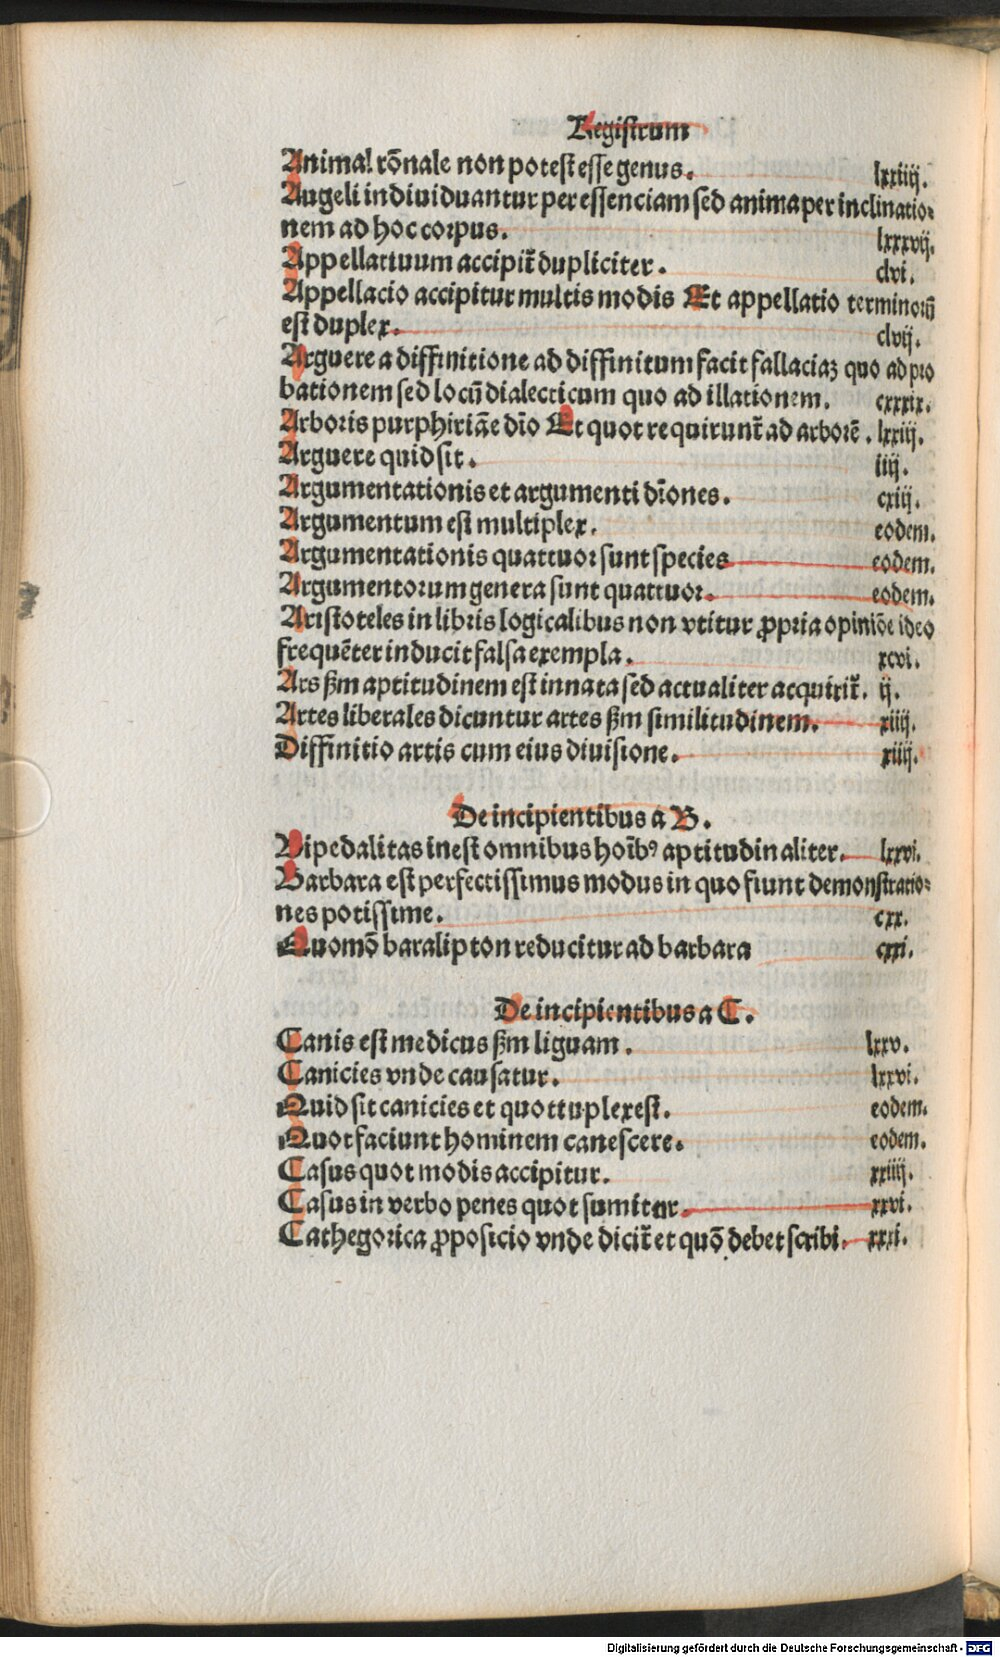 Registrum
Animal rōnale non potest esse genus. lxxiiij.
Augeli indiuiduantur per essenciam sed anima per inclinatio⸗
nem ad hoc corpus. lxxxvij.
Appellatiuum accipit̄ dupliciter. clvi.
Appellacio accipitur multis modis Et appellatio terminorū
est duplex. clvij.
Arguere a diffinitione ad diffinitum facit fallaciaꝫ quo ad pro
bationem sed locū dialecticum quo ad illationem. cxxxix.
Arboris purphiriāe dīo Et quot requirunt̄ ad arborē. lxxiij.
Arguere quid sit. iiij.
Argumentationis et argumenti dīones. cxiij.
Argumentum est multiplex. eodem.
Argumentationis quattuor sunt species eodem.
Argumentorum genera sunt quattuor. eodem.
Aristoteles in libris logicalibus non vtitur ꝓpria opiniōe ideo
frequēter inducit falsa exempla. xcvi.
Ars ẜm aptitudinem est innata sed actualiter acquirit̄. ij.
Artes liberales dicuntur artes ẜm similitudinem. xiiij.
Diffinitio artis cum eius diuisione. xiiij.
De incipientibus a B.
Bipedalitas inest omnibus hoīb⁹ aptitudinaliter. lxxvi.
Barbara est perfectissimus modus in quo fiunt demonstratio⸗
nes potissime. cxx.
Quomō baralipton reducitur ad barbara cxxi.
De incipientibus a C.
Canis est medicus ẜm liguam. lxxv.
Canicies vnde causatur. lxxvi.
Quid sit canicies et quottuplex est. eodem.
Quot faciunt hominem canescere. eodem.
Casus quot modis accipitur. xxiiij.
Casus in verbo penes quot sumitur. xxvi.
Cathegorica ꝓposicio vnde dicit̄ et quō debet scribi. xxxi.
Digitalisierung gefördert durch die Deutsche Forschungsgemeinschaft - DFG